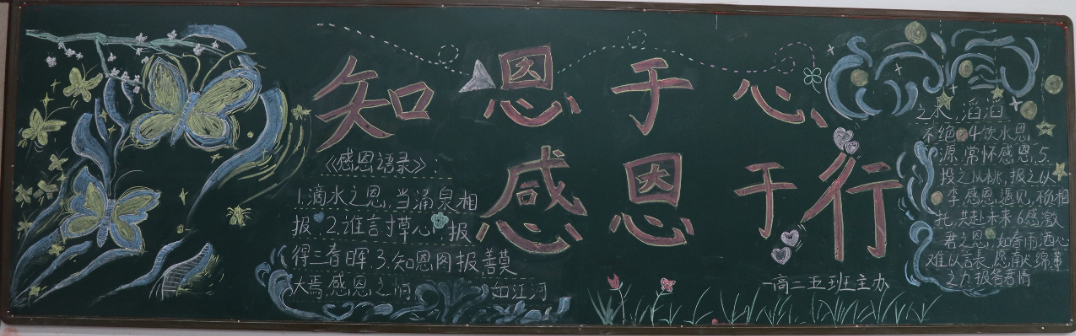 知恩于心
感恩于行
《感恩语录》:
1.滴水之恩,当涌泉相
报 2.谁言寸草心 报
得三春晖 3.知恩图报善莫
大焉感恩之 如江河
之 滔滔
不绝 4.饮水思
源,常怀感恩,5.
投之以桃,报之以
李感恩遇见,
托,共赴未来 6感激
君之恩,如 心
难以言表,愿献绵薄
之力报答君情
高二五班主办